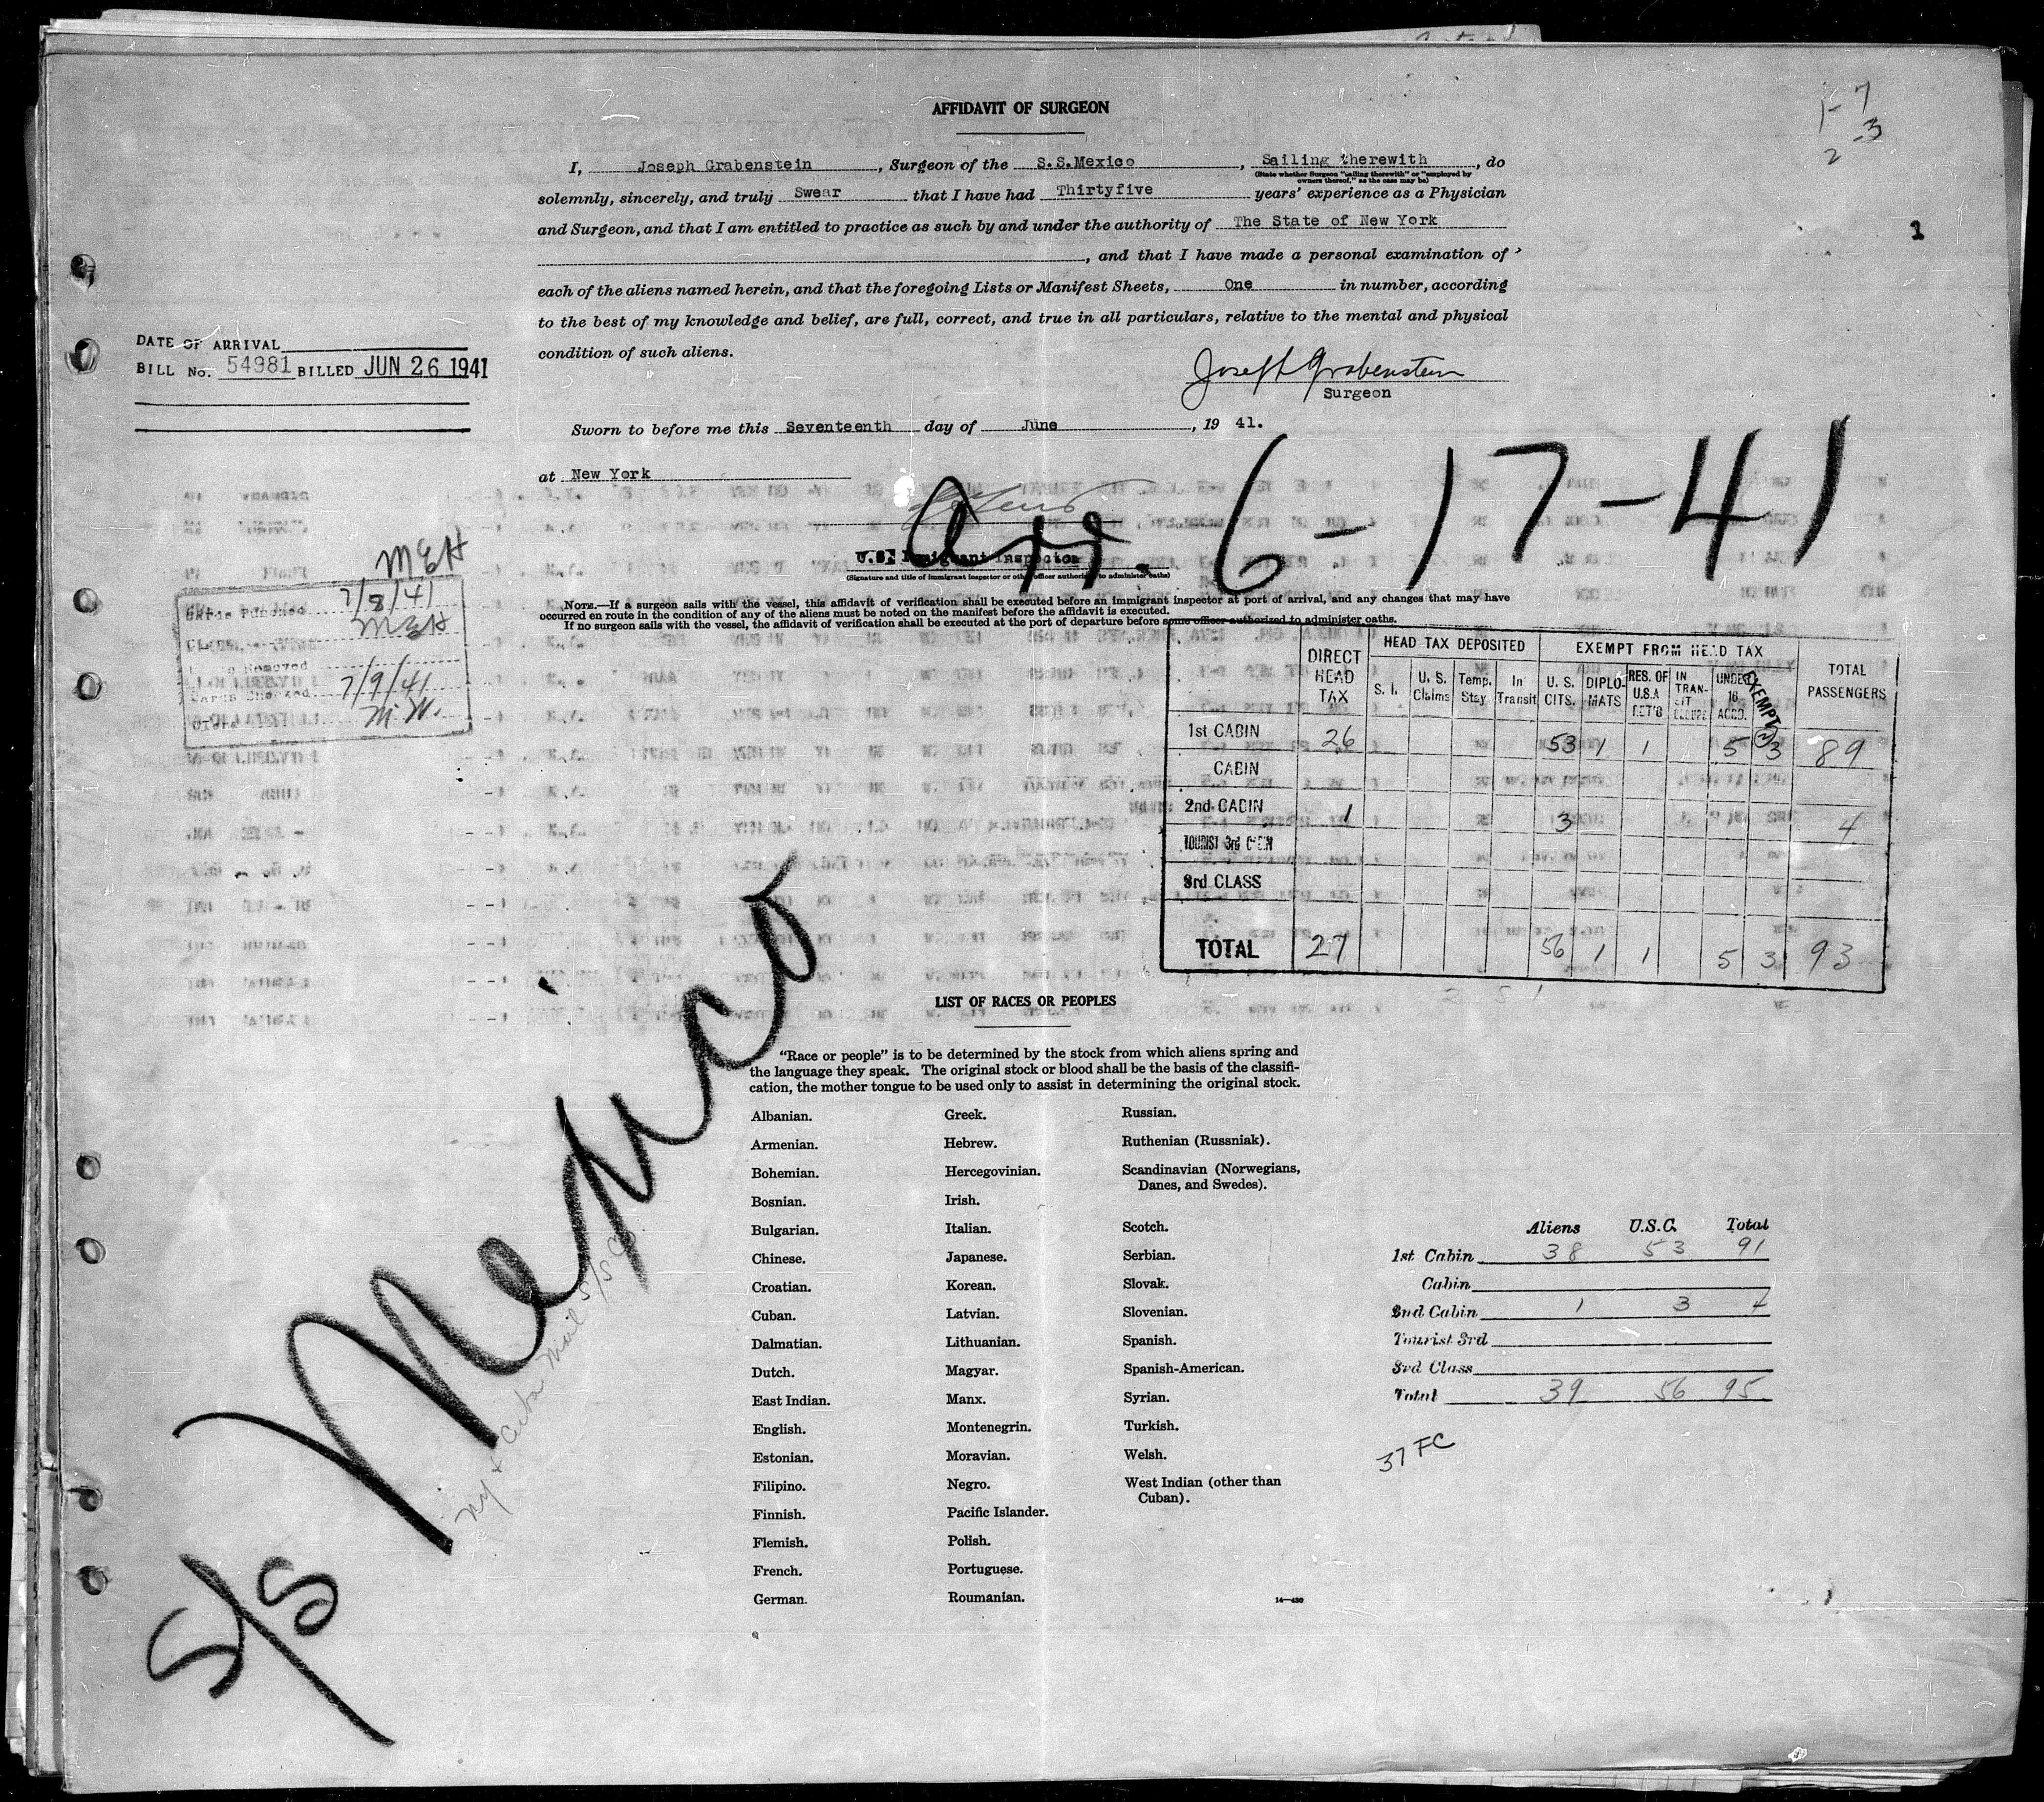 AFFIDAVIT OF SURGEON
I, Joseph Grabenstein, Surgeon of the S.S.Mexico, Sailing therewith, do
(State whether Surgeon "sailing therewith" or "employed by
owners thereof," as the case may be)
solemnly, sincerely, and truly Swear that I have had Thirtyfive years' experience as a Physician
and Surgeon, and that I am entitled to practice as such by and under the authority of The State of New York
, and that I have made a personal examination of
each of the aliens named herein, and that the foregoing Lists or Manifest Sheets, One in number, according
to the best of my knowledge and belief, are full, correct, and true in all particulars, relative to the mental and physical
condition of such aliens.
Joseph Grabenstein
Surgeon
Sworn to before me this Seventeenth day of June, 19 41.
at New York
U.S. Immigrant Inspector
(Signature and title of immigrant inspector or other officer authorized to administer oaths)
NOTE.—If a surgeon sails with the vessel, this affidavit of verification shall be executed before an immigrant inspector at port of arrival, and any changes that may have
occurred en route in the condition of any of the aliens must be noted on the manifest before the affidavit is executed.
If no surgeon sails with the vessel, the affidavit of verification shall be executed at the port of departure before some officer authorized to administer oaths.
1- 7
2 -3
1
DATE OF ARRIVAL
BILL No. 54981 BILLED JUN 26 1941
Arr. 6-17-41
MEH
Cards Punched 7/8/41
MEH
Removed
Cards Checked 7/9/41
M.W.
DIRECT HEAD TAX
HEAD TAX DEPOSITED
EXEMPT FROM HEAD TAX
TOTAL PASSENGERS
S. I. U. S. Claims Temp. Stay In Transit U. S. CITS. DIPLO-MATS RES. OF U.S.A RET'G IN TRAN-SIT UNDER 16 ACCO. EXEMPT
1st CABIN 26 53 1 1 5 (2) 3 89
CABIN
2nd CABIN 1 3 4
TOURIST 3rd CABIN
3rd CLASS
TOTAL 27 56 1 1 5 3 93
S/S Mexico
NY & Cuba Mail S/S Co
LIST OF RACES OR PEOPLES
"Race or people" is to be determined by the stock from which aliens spring and
the language they speak. The original stock or blood shall be the basis of the classifi-
cation, the mother tongue to be used only to assist in determining the original stock.
Albanian.
Armenian.
Bohemian.
Bosnian.
Bulgarian.
Chinese.
Croatian.
Cuban.
Dalmatian.
Dutch.
East Indian.
English.
Estonian.
Filipino.
Finnish.
Flemish.
French.
German.
Greek.
Hebrew.
Hercegovinian.
Irish.
Italian.
Japanese.
Korean.
Latvian.
Lithuanian.
Magyar.
Manx.
Montenegrin.
Moravian.
Negro.
Pacific Islander.
Polish.
Portuguese.
Roumanian.
Russian.
Ruthenian (Russniak).
Scandinavian (Norwegians,
Danes, and Swedes).
Scotch.
Serbian.
Slovak.
Slovenian.
Spanish.
Spanish-American.
Syrian.
Turkish.
Welsh.
West Indian (other than
Cuban).
14—430
Aliens U.S.C. Total
1st Cabin 38 53 91
Cabin
2nd Cabin 1 3 4
Tourist 3rd
3rd Class
Total 39 56 95
37 FC